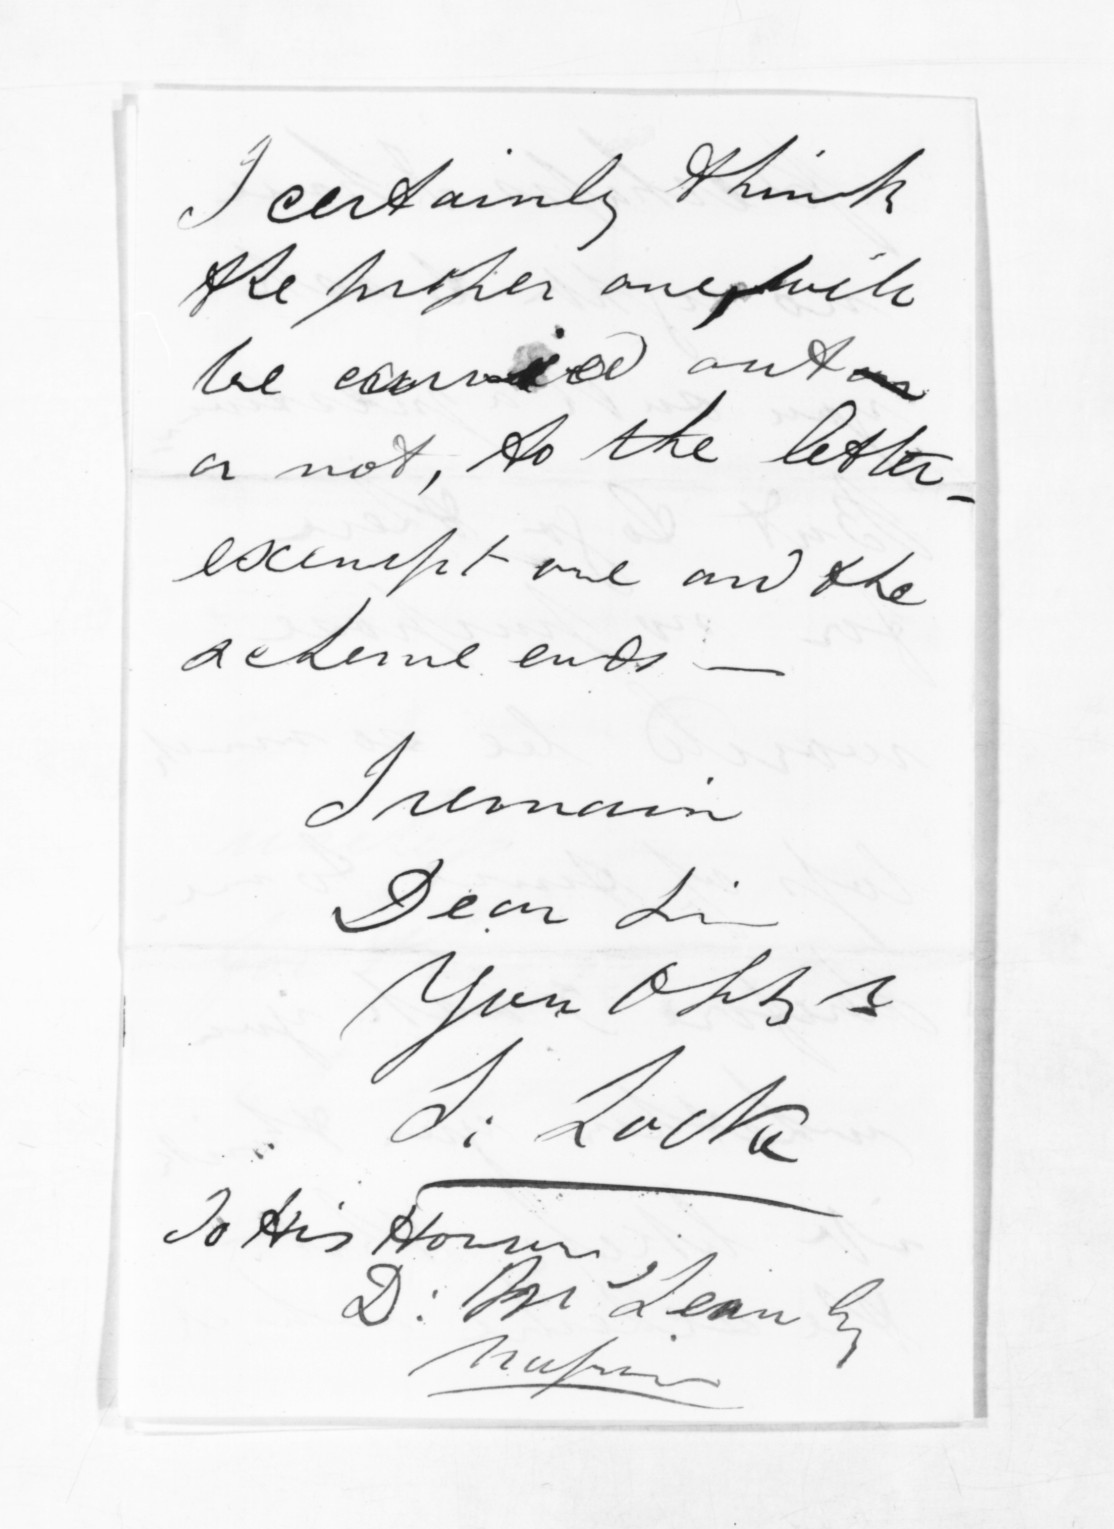 I certainly think
the proper one, will
be carried out
or not, to the letter -
excempt one and the
scheme ends —
I remain
Dear Sir
Your Obt
S: Locke
To His Honour
D: McLean Esq
Napier